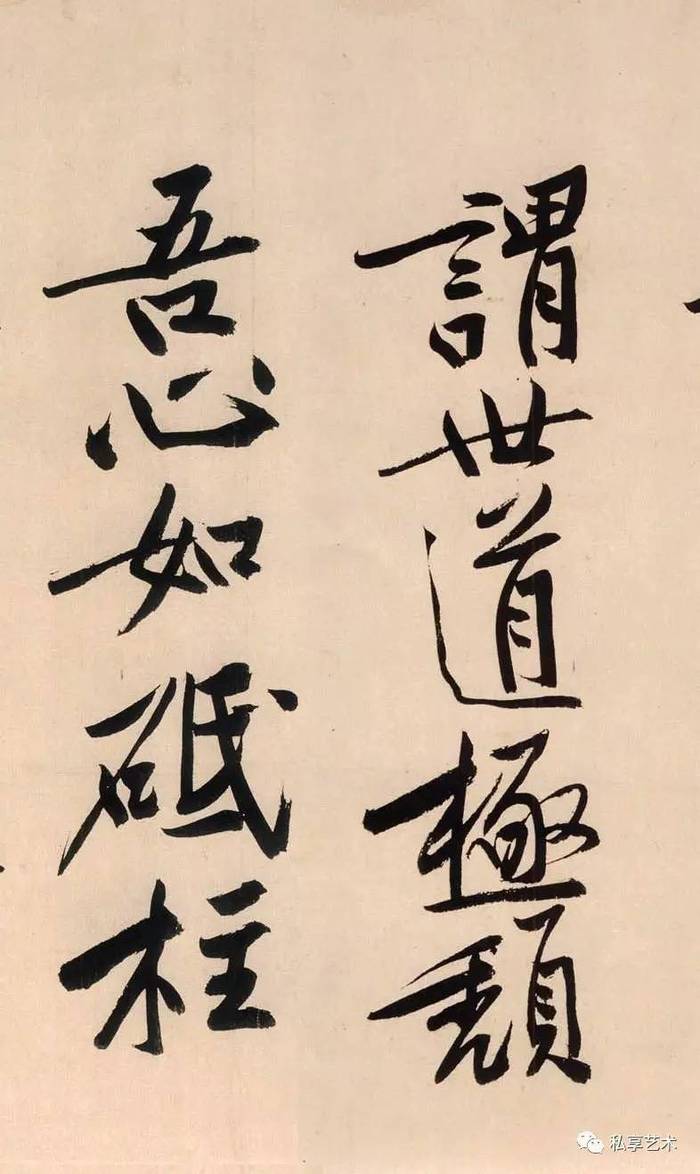 謂世道極頽
吾心如砥柱
私享艺术